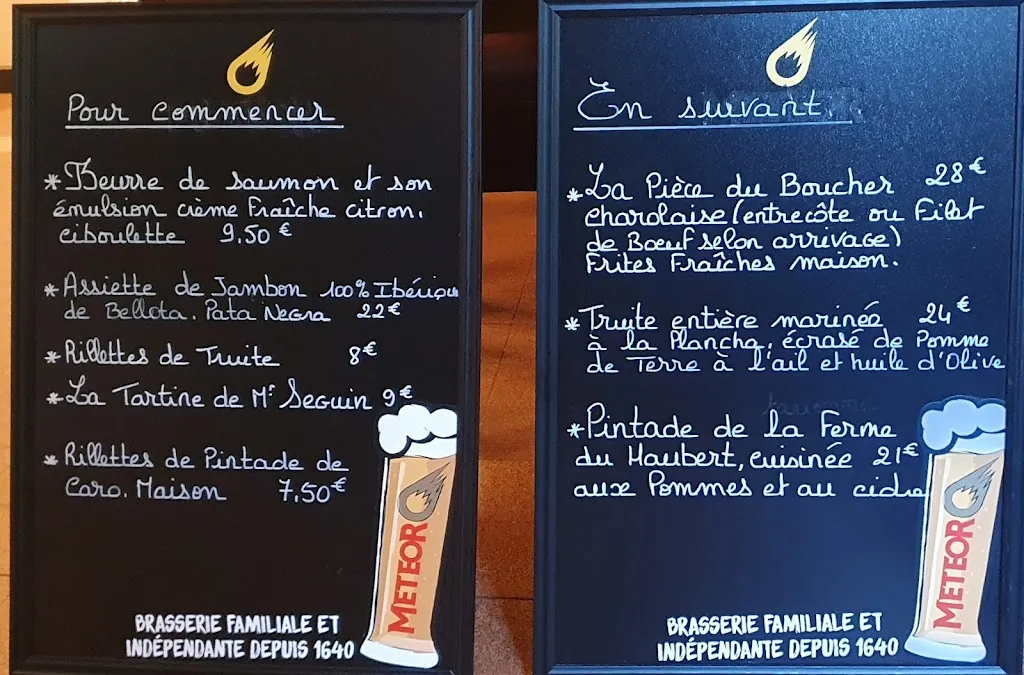 Pour commencer
* Beurre de saumon et son
émulsion crème Fraîche citron.
ciboulette 9.50 €
* Assiette de Jambon 100% Ibérique
de Bellota. Pata Negra 22€
* Rillettes de Truite 8€
* La Tartine de Mr Seguin 9€
* Rillettes de Pintade de
Caro. Maison 7,50€
METEOR
BRASSERIE FAMILIALE ET
INDÉPENDANTE DEPUIS 1640
En suivant..
* La Pièce du Boucher 28€
charolaise (entrecôte ou Filet
de Bœuf selon arrivage)
Frites Fraîches maison.
* Truite entière marinée 24€
à la Plancha, écrasé de Pomme
de Terre à l'ail et huile d'Olive
* Pintade de la Ferme
du Haubert, cuisinée 21€
aux Pommes et au cidre
METEOR
BRASSERIE FAMILIALE ET
INDÉPENDANTE DEPUIS 1640